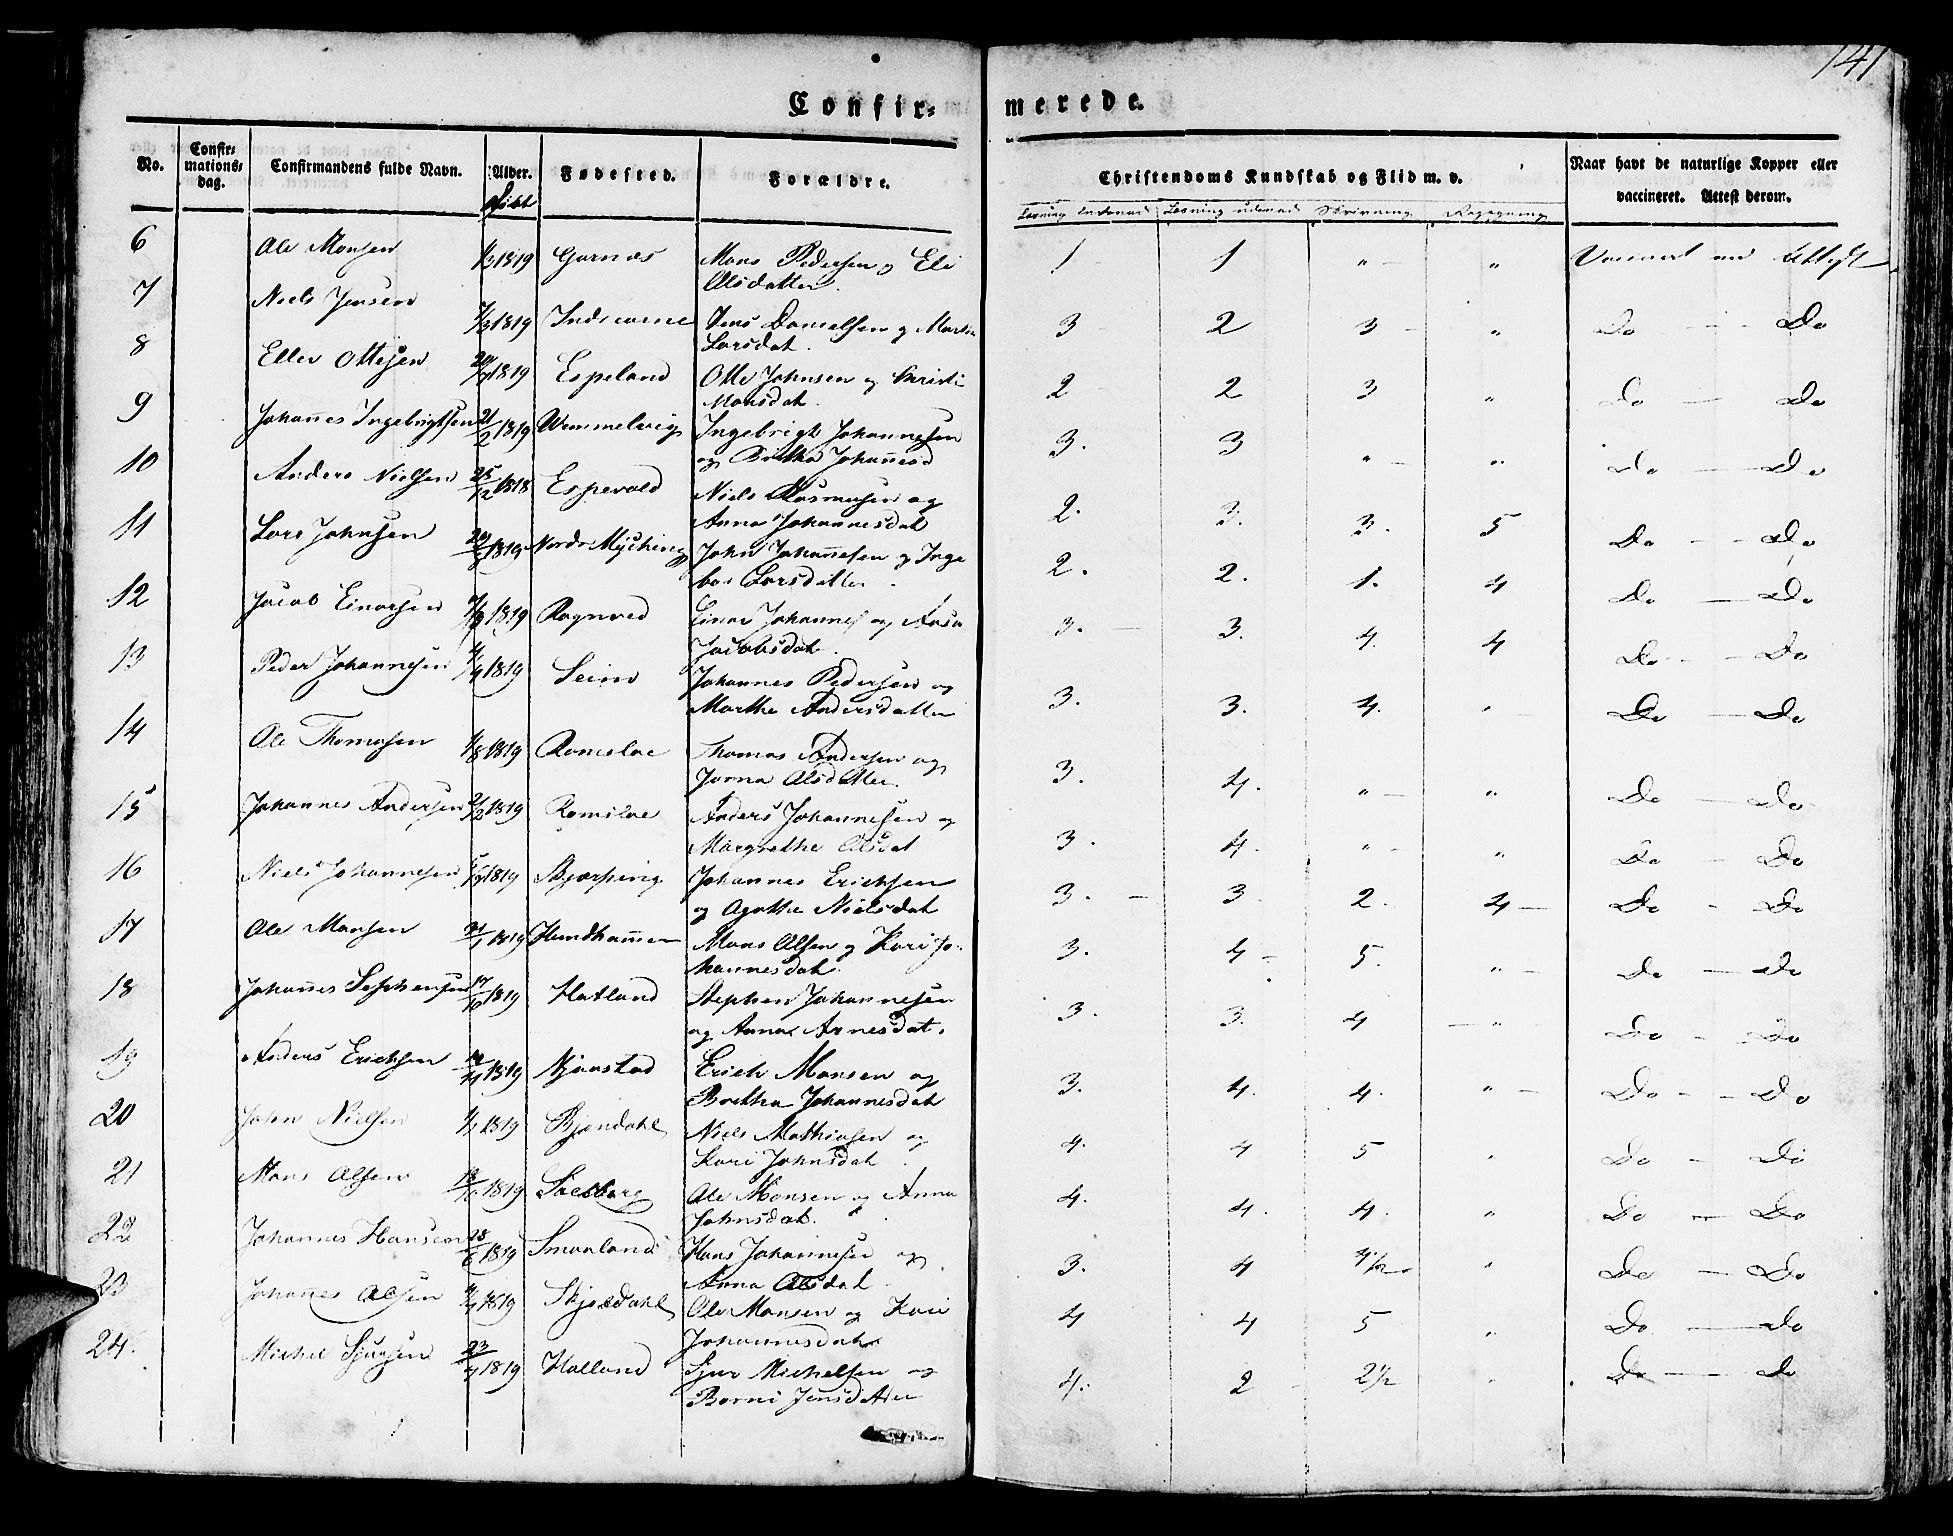 141
Confir-merede.
No.
Confir-
mations-
dag.
Confirmandens fulde Navn.
Alder.
Født
Fødested.
Forældre.
Christendoms Kundskab og Flid m. v.
Læsning indenad Læsning udenad Skrivning Regning
Naar havt de naturlige Kopper eller
vaccineret. Attest derom.
6 Ole Monsen 1819 Garnæs Mons Pedersen og Eli 1 1 " "
Olsdatter.
7 Niels Jensen 1819 Jens Danielsen og 3 2 3 " Do - Do
Larsdat.
8 Eller Ottesen 1819 Espeland Otte Johnsen og Christi 2 2 3 " Do - Do
Monsdat.
9 Johannes Ingebrigtsen 21/2 1819 Wemmelvig Ingebrigt Johannesen 3. 3 " " Do - Do
og Britha Johannesd
10 Anders Nielsen 25/12 1818 Espevold Niels Rasmusen og 2. 3. 3. 5 Do - Do
Anna Johannesdat
11 Lars Johnsen 1819 Nordr Myhring John Johannesen og Inge 2. 2. 1. 4 Do - Do
bor Larsdatter.
12 Jacob Einarsen 1819 Rognved Einar Johannes og Aasa 3. 3. 4. 4 Do - Do
Jacobsdat.
13 Peder Johannesen 1819 Seim Johannes Pedersen og 3. 3. 4. " Do - Do
Marthe Andersdatter
14 Ole Thomasen 1/8 1819 Romsloe Thomas Andersen og 3. 4. " " Do - Do
Olsdatter.
15 Johannes Andersen 2/2 1819 Romsloe Anders Johannesen og 3. 4. " " Do - Do
Margrethe Olsdat
16 Niels Johannesen 1819 Skjerping Johannes Erichsen 3. 3 2. 4 Do - Do
og Agathe Nielsdat
17 Ole Monsen 1819 Hundhammer Mons Olsen og Kari Jo- 3. 4 5. " Do - Do
hannesdat.
18 Johannes Stephensen 1819 Hatland Stephen Johannesen 3. 3. 4 " Do - Do
og Anna Arnesdat.
19 Anders Erichsen 1819 Erich Monsen og 3. 4. 4. " Do - Do
Britha Johannesdat
20 John Nielsen 1819 Bjondahl Niels Mathiasen og 4. 4 5 " Do - Do
Kari Johnsdat
21 Mons Olsen 1819 Ole Monsen og Anna 4. 4. 4. " Do - Do
Johnsdat.
22 Johannes Hansen 28/6 1819 Smaaland Hans Johannesen og 3. 4 4 1/2 " Do - Do
Anna Olsdat
23 Johannes Olsen 1819 Skjoldahl Ole Monsen og Kari 4 4 5 " Do - Do
Johannesdat
24. Michel Sjursen 1819 Hatland Sjur Michelsen og 4. 2 2 1/2 " Do - Do
Jensdatter